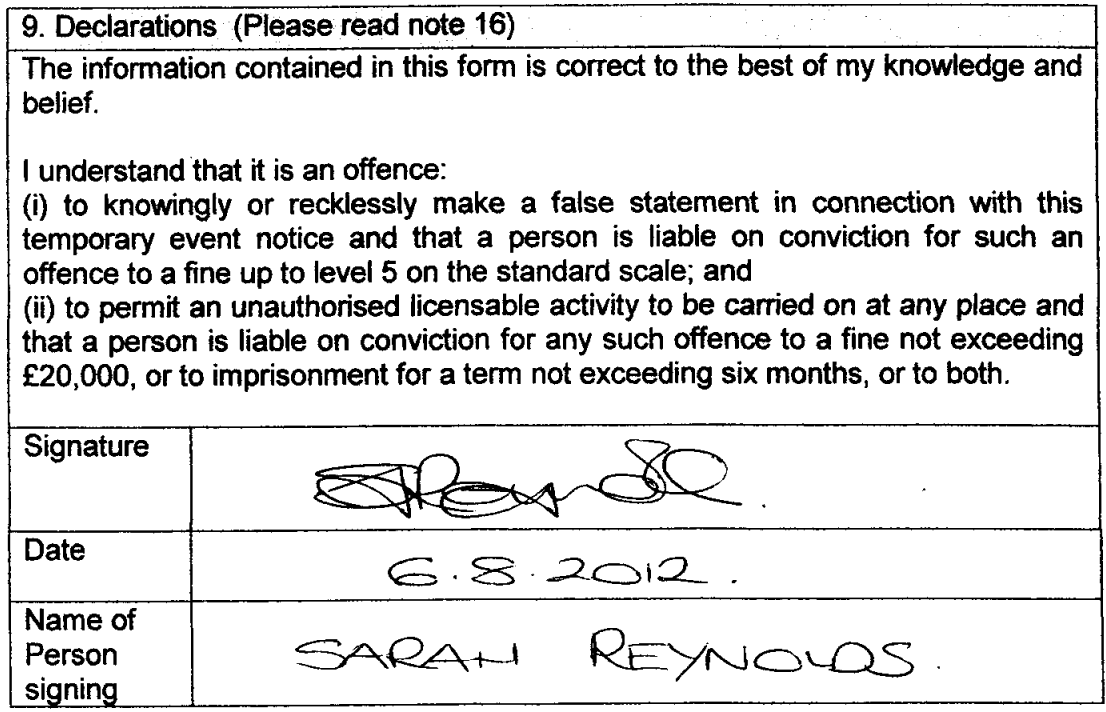 9. Declarations (Please read note 16)
The information contained in this form is correct to the best of my knowledge and
belief.
I understand that it is an offence:
(i) to knowingly or recklessly make a false statement in connection with this
temporary event notice and that a person is liable on conviction for such an
offence to a fine up to level 5 on the standard scale; and
(ii) to permit an unauthorised licensable activity to be carried on at any place and
that a person is liable on conviction for any such offence to a fine not exceeding
£20,000, or to imprisonment for a term not exceeding six months, or to both.
Signature
Date
6.8.2012.
Name of
Person
signing
SARAH REYNOLDS.